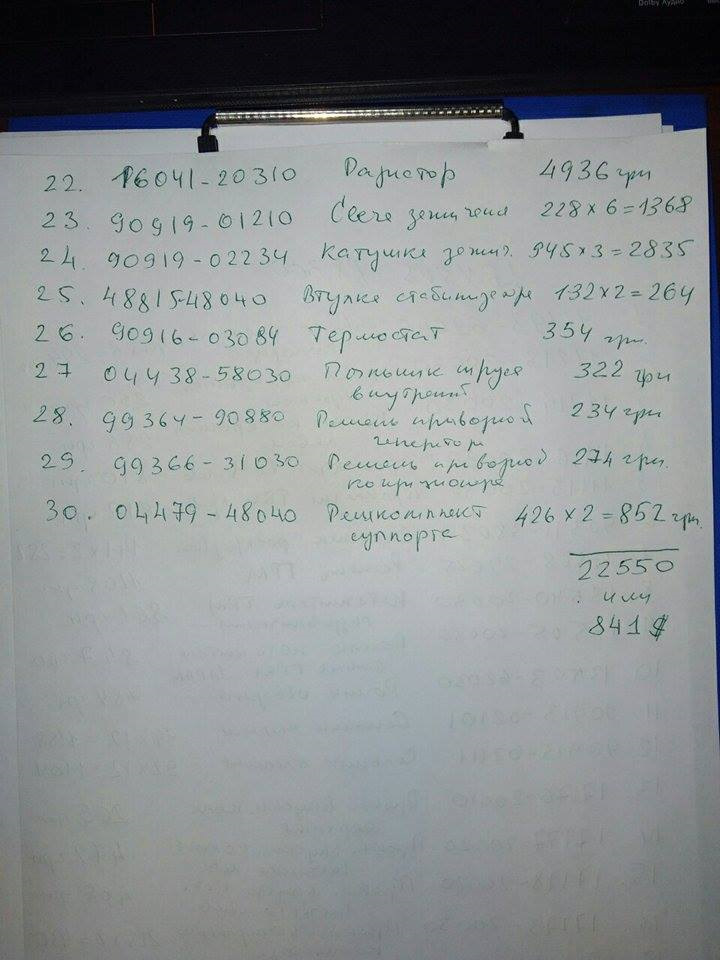 Dolby Аудио
22. 16041-20310 Радиатор 4936 грн
23. 90919-01210 Свеча зажигания 228 x 6 = 1368
24. 90919-02234 Катушка зажиг. 945 x 3 = 2835
25. 48815-48040 Втулка стабилизатора 132 x 2 = 264
26. 90916-03084 Термостат 354 грн.
27 04438-58030 Пыльник шруса 322 грн
внутрений
28. 99364-90880 Ремень приводной 234 грн
генератора
29. 99366-31030 Ремень приводной 274 грн.
кондиционера
30. 04479-48040 Ремкомплект 426 x 2 = 852 грн.
суппорта
22550
или
841 $